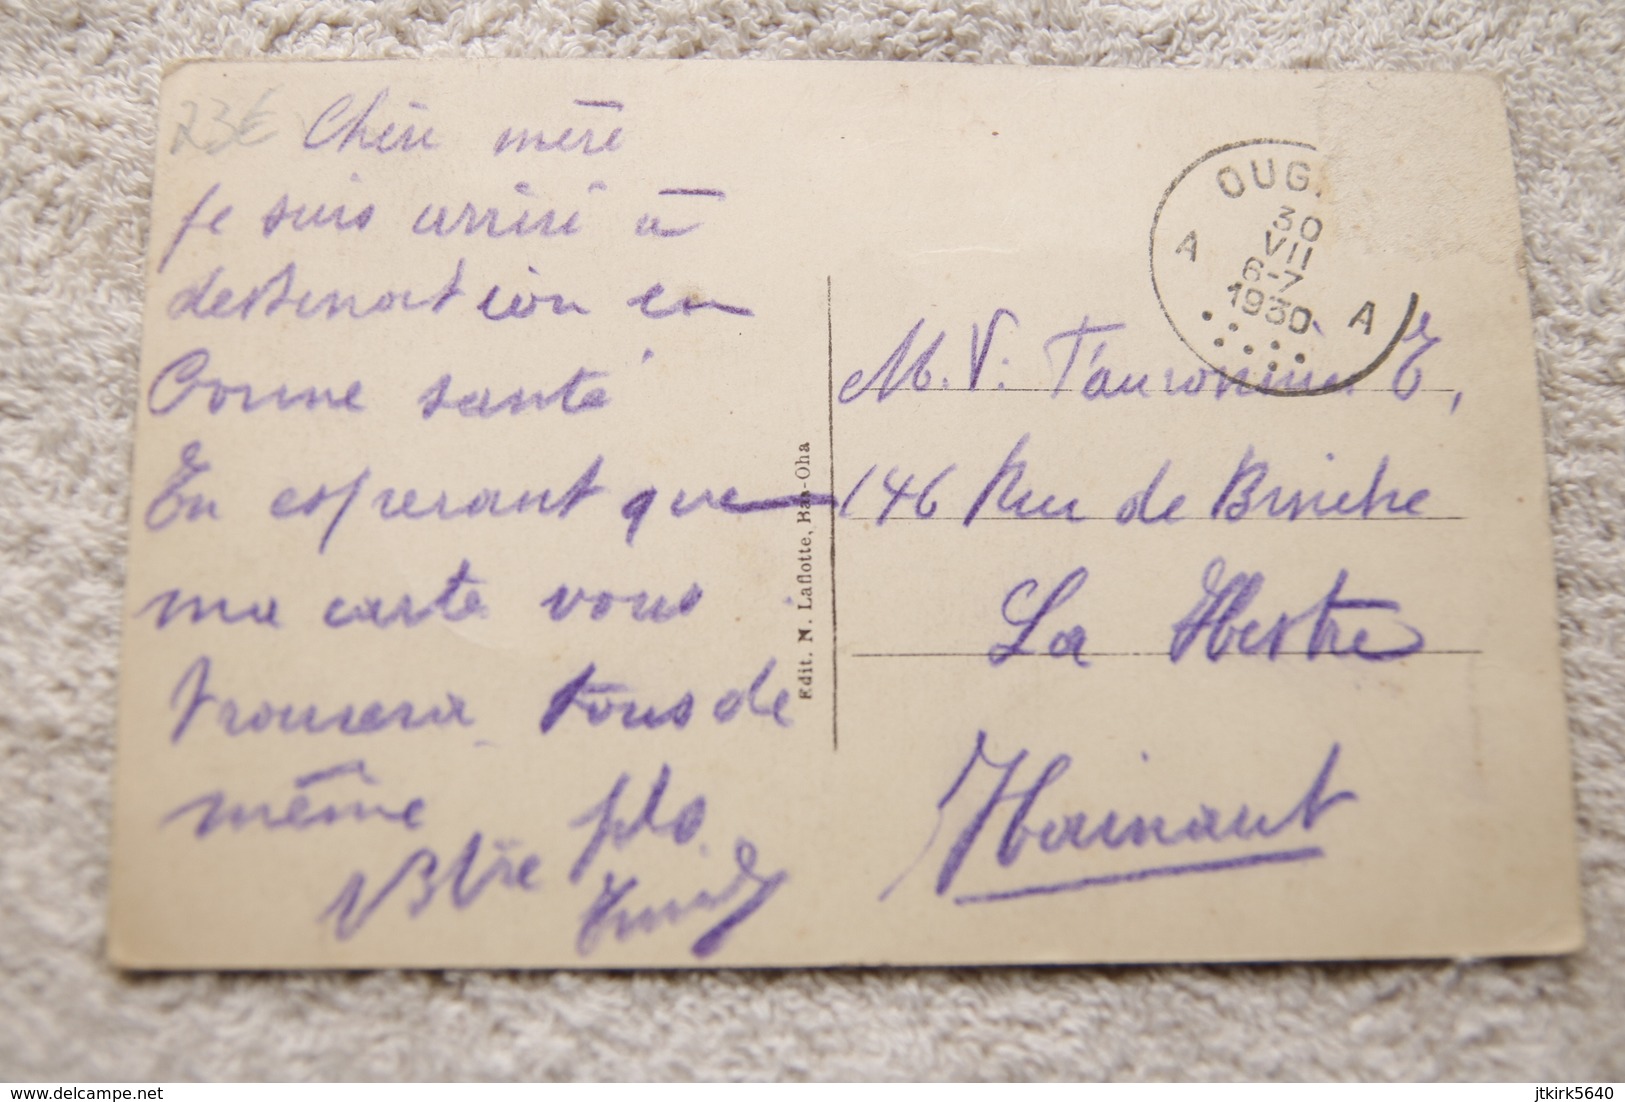 23€ Chère mère
Je suis arrivé à
destination en
Bonne santé
En esperant que
ma carte vous
trouvera tous de
même
Votre fils
Edit. N. Laflotte, Bas-Oha
OUG.
A 30 A
VII
6-7
1930
M. V. E,
146 Rue de Binche
La Hestre
Hainaut
www.delcampe.net
jtkirk5640